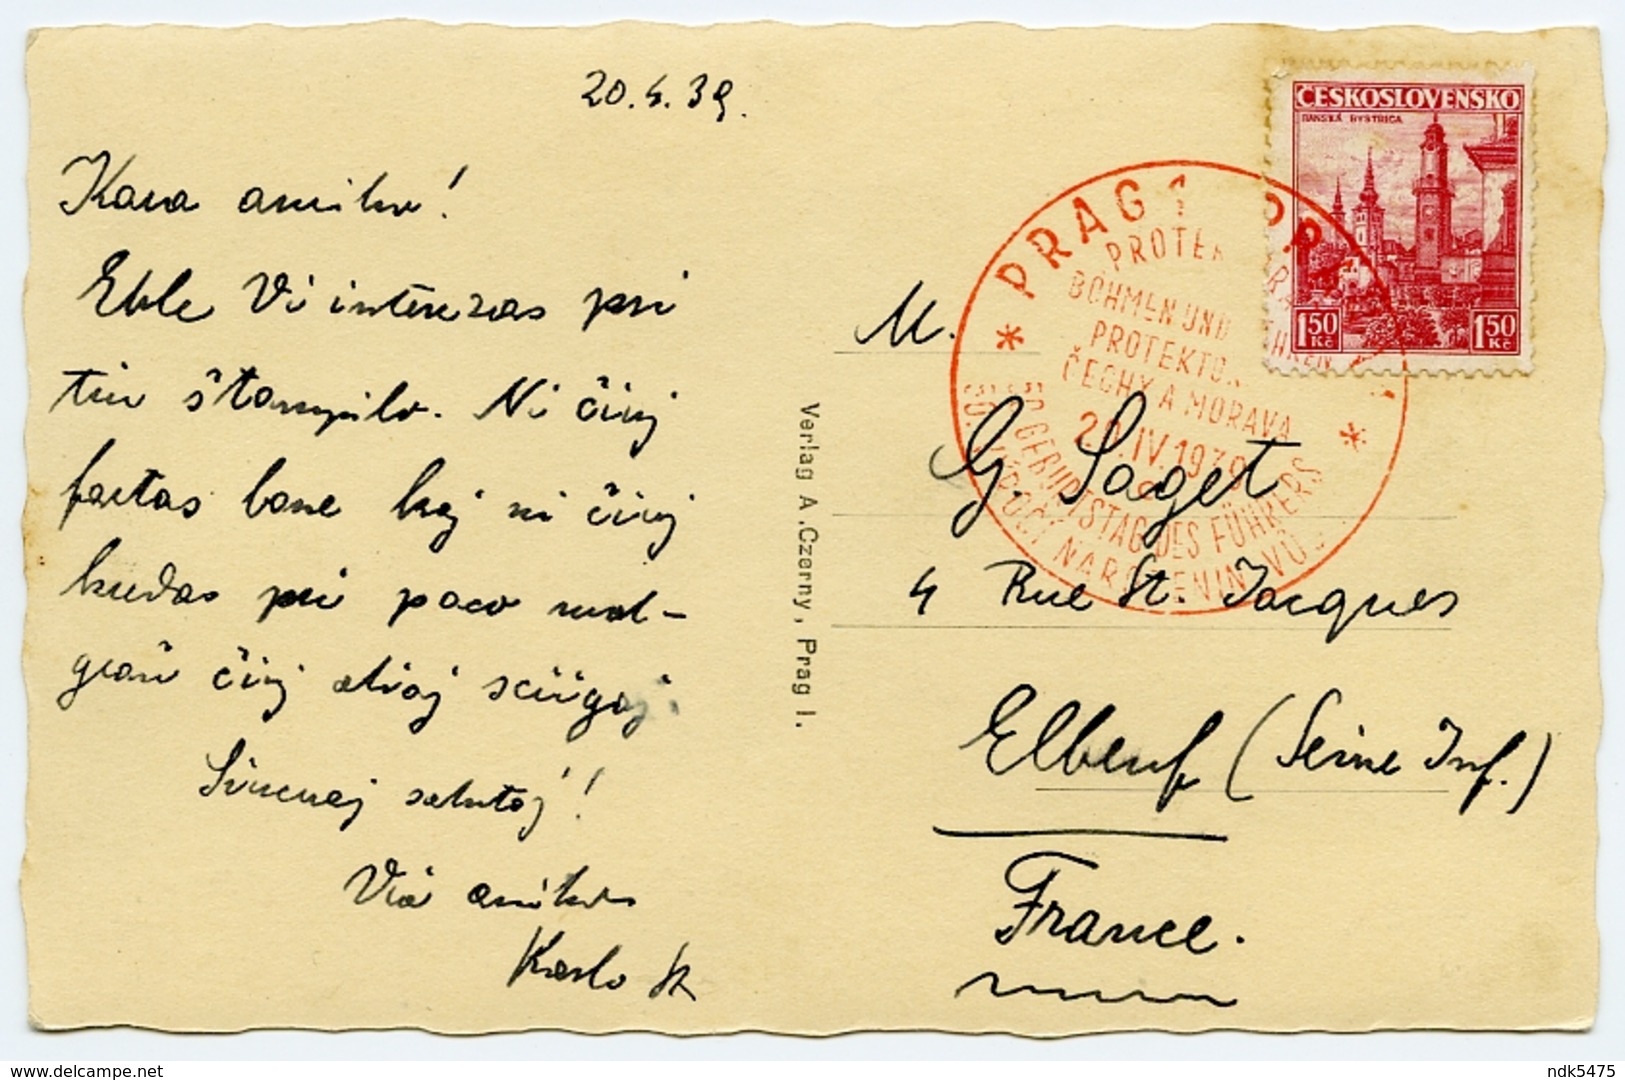 20.4.39.
Kara amiko!
Eble Vi interezas pri
tiu štampilo. Ni čiuj
fartas bone kaj ni čiuj
kuŝas pri paco mal-
graŭ čiuj
Sinceraj salutoj!
Via amiko
Karlo
Verlag A. Czerny, Prag I.
ČESKOSLOVENSKO
BANSKÁ BYSTRICA
1 50 Kč 1 50 Kč
PRAG 1
PROTEK
BÖHMEN UND
PROTEKTO
ČECHY A MORAVA
20.IV.1939
50. GEBURTSTAG DES FÜHRERS
50. VÝROČÍ NAROZENIN VŮ
M.
G. Saget
4 Rue St. Jacques
Elbeuf (Seine Inf.)
France.
delcampe.net
ndk5475